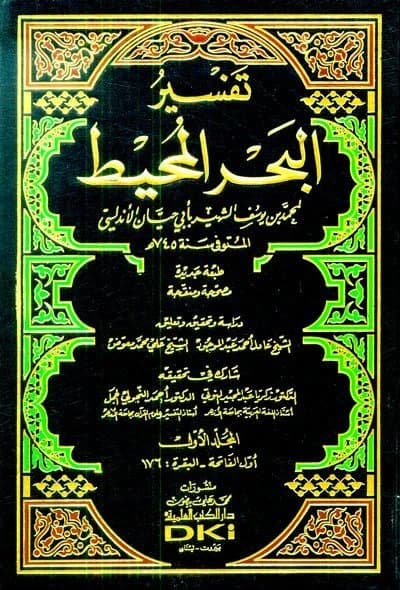 تفسير
البحر المحيط
لمحمد بن يوسف الشهير بأبي حيان الأندلسي
المتوفى سنة ٧٤٥ هـ
طبعة جديدة
مصححة ومنقحة
دراسة وتحقيق وتعليق
الشيخ عادل أحمد عبد الموجود الشيخ علي محمد معوض
شارك في تحقيقه
الدكتور زكريا عبد المجيد النوتي الدكتور أحمد النجولي الجمل
أستاذ اللغة العربية بجامعة الأزهر أستاذ التفسير وعلوم القرآن بجامعة الأزهر
المجلد الأول
أول الفاتحة - البقرة: ١٧٦
منشورات
محمد علي بيضون
دار الكتب العلمية
DKi
بيروت - لبنان